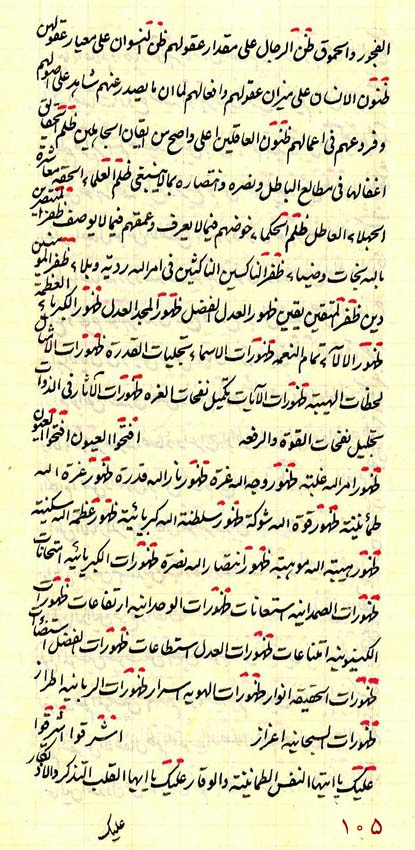 الفجور والحموق ظن الرجال على مقدار عقولهم ظن النسوان على معيار عقولهن
ظنون الانسان على ميزان عقولهم وافعالهم لما ان ما يصدر عنهم شاهد على اصولهم
وفروعهم فى اعمالهم ظنون العاقلين اعلى واضح من ايقان الجاهلين ظلم الحقايق
اغفالها فى مطالع الباطل ونصره وانتصاره بما لا ينبغى ظلم العلماء
الجهلاء العاطل ظلم الحكماء خوضهم فيما لا يعرف وعمقهم فيما لا يوصف ظفر
بالله نجات وضياء ظفر الناكسين الناكثين فى امر الله رديه وبلاء ظفر
دين ظفر المتقين يقين ظهور العدل الفضل ظهور المجد العدل ظهور الكبرياء العظمة
ظهور الآلاء تمام النعمه ظهورات الاسماء تجليات القدرة ظهورات
لحظات الهيبته ظهورات الآيات تكميل نفحات العزه ظهورات الآثار فى الذوات
تجليل نفحات القوة والرفعه افتحوا العيون افتحوا العيون
ظهور امر الله غلبته ظهور وجه الله عزة ظهور نار الله قدرة ظهور عزة الله
طمأنينته ظهور قوة الله شوكة ظهور سلطنة الله كبريائيته ظهور عظمة الله سكينته
ظهور هيبته الله موهبته ظهور انتصار الله نصرة ظهورات الكبريائيه امتحانات
ظهورات الصمدانيه استعانات ظهورات الوحدانيه ارتفاعات ظهورات
الكينونيه امتناعات ظهورات العدل استطاعات ظهورات الفضل
ظهورات الحقيقه انوار ظهورات الهويه اسرار ظهورات الربانيه اطراز
ظهورات السبحانيه اعزاز اشرقوا اشرقوا
عليك يا ايتها النفس الطمأنينته والوقار عليك يا ايها القلب التذكر والاذكار
عليك
١٠٥